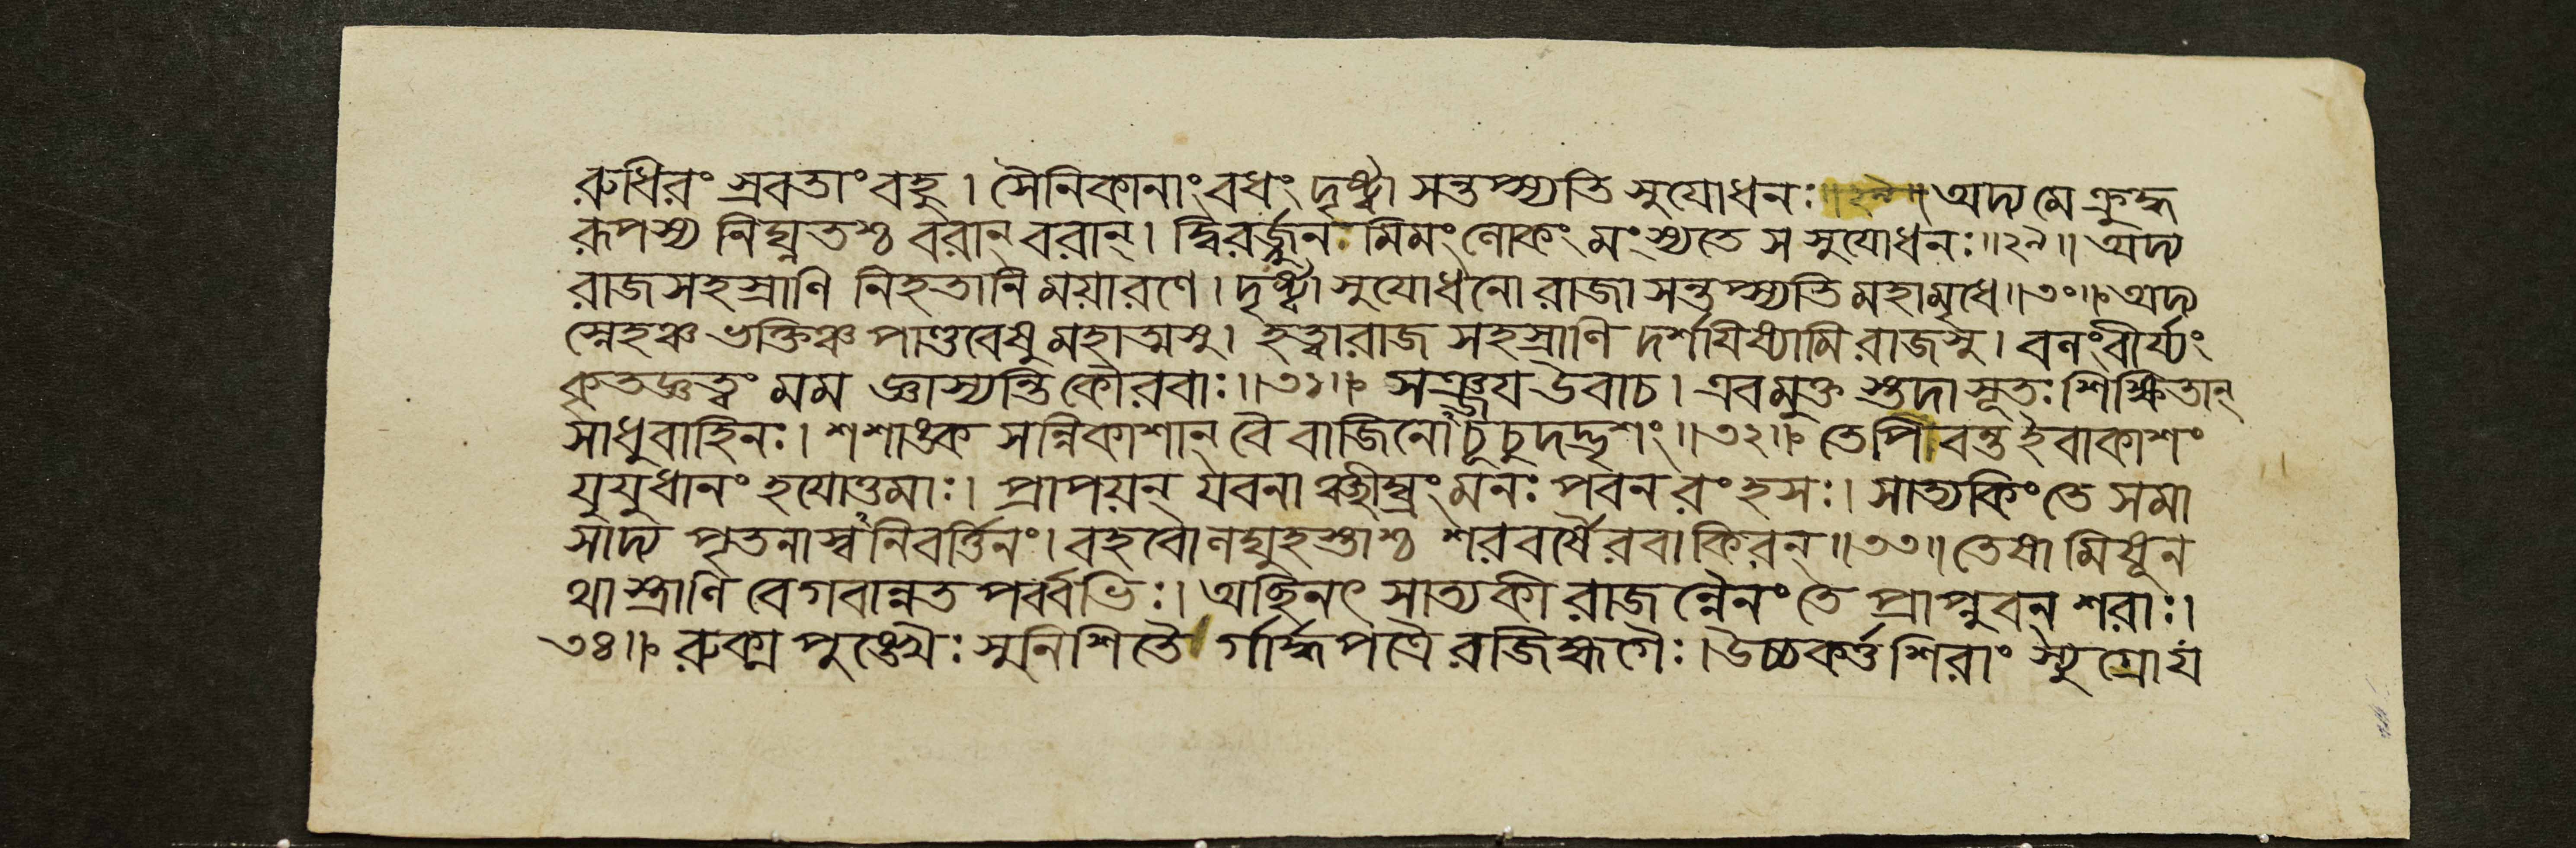 রুধিরং স্রবতাং বহু। সৈনিকানাং বধং দৃষ্ট্বা সন্তপ্স্যতি সুযোধনঃ॥২৮॥ অদ্য মে ক্রুদ্ধ
রূপস্য নিঘ্নতশ্চ বরান্ বরান্। দ্বিরর্জ্জুন মিমং লোকং মংস্যতে স সুযোধনঃ॥২৯॥ অদ্য
রাজসহস্রাণি নিহতানি ময়া রণে। দৃষ্ট্বা সুযোধনো রাজা সন্তপ্স্যতি মহামৃধে॥৩০॥ অদ্য
স্নেহঞ্চ ভক্তিঞ্চ পাণ্ডবেষু মহাত্মসু। হত্বা রাজ সহস্রাণি দর্শযিষ্যামি রাজসু। বলং বীর্য্যং
কৃতজ্ঞত্বং মম জ্ঞাস্যন্তি কৌরবাঃ॥৩১॥ সঞ্জয উবাচ। এবমুক্ত স্তদা সূতঃ শিক্ষিতান্
সাধুবাহিনঃ। শশাঙ্ক সন্নিকাশান্ বৈ বাজিনো চূচুদদ্ভৃশং॥৩২॥ তে পিবন্ত ইবাকাশং
যুযুধানং হযোত্তমাঃ। প্রাপয়ন্ যবনাঞ্ছীঘ্রং মনঃ পবন রংহসঃ। সাত্যকিং তে সমা
সাদ্য পৃতনাস্বনিবর্ত্তিনং। বহবো লঘুহস্তাশ্চ শরবর্ষৈরবাকিরন্॥৩৩॥ তেষা মিষূন
থাস্ত্রাণি বেগবান্নত পর্ব্বভিঃ। অছিনৎ সাত্যকী রাজন্নৈনং তে প্রাপ্নুবন্ শরাঃ।
৩৪॥ রুক্ম পুঙ্খৈঃ সুনিশিতৈ র্গার্দ্ধপত্রৈ রজিহ্মগৈঃ। উচ্চকর্ত্ত শিরাং স্যুগ্রো য